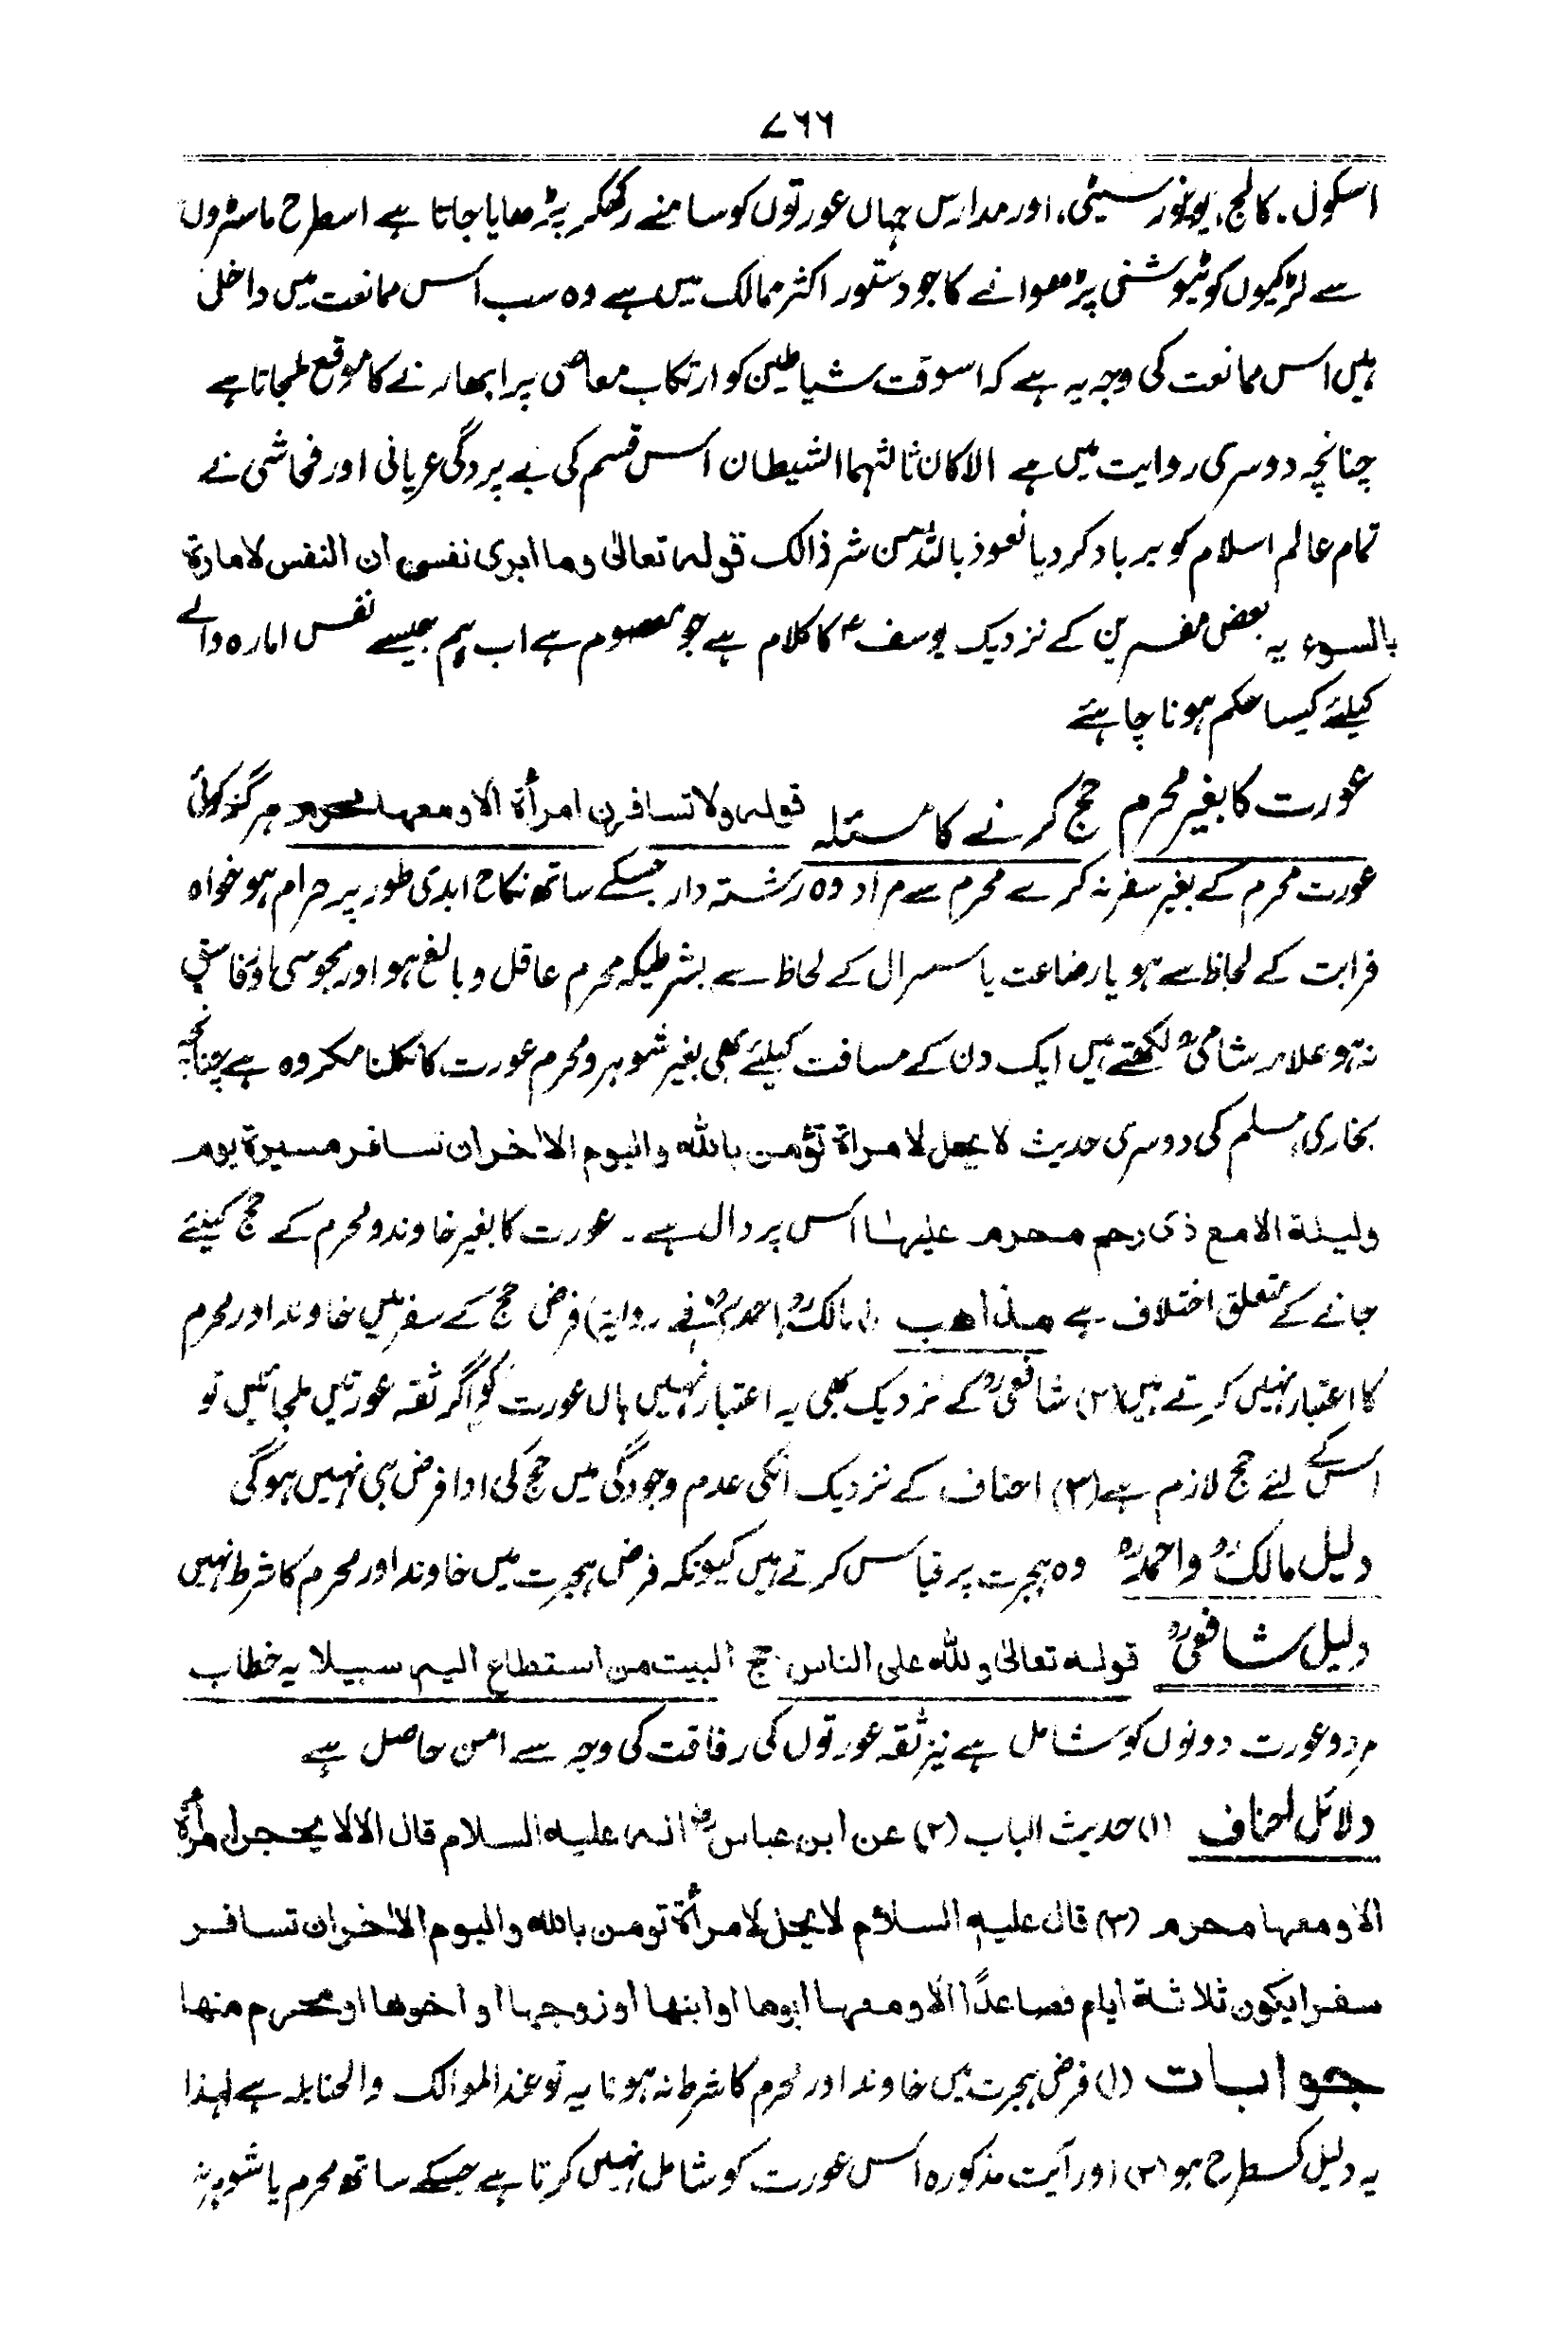 ۷۶۶
اسکول، کالج، یونیورسیٹی، اور مدارس جہاں عورتوں کو سامنے رکھکر پڑھایا جاتا ہے اسطرح ماسٹروں
سے لڑکیوں کو ٹیوشنی پڑھوانے کا جو دستور اکثر ممالک میں ہے وہ سب اس ممانعت میں داخل
ہیں اس ممانعت کی وجہ یہ ہے کہ اسوقت شیاطین کو ارتکاب معاصی پر ابھارنے کا موقع ملجاتا ہے
چنانچہ دوسری روایت میں ہے الا کان ثالثہما الشیطان اس قسم کی بے پردگی عریانی اور فحاشی نے
تمام عالم اسلام کو برباد کر دیا نعوذ باللہ من شر ذالک قولہ تعالیٰ وما ابری نفسی ان النفس لامارة
بالسوء یہ بعض مفسرین کے نزدیک یوسفؑ کا کلام ہے جو معصوم ہے اب ہم جیسے نفس امارہ والے
کیلئے کیسا حکم ہونا چاہئے
عورت کا بغیر محرم حج کرنے کا مسئلہ قولہ ولا تسافرن امرأة الا ومعہا محرم ہرگز کوئی
عورت محرم کے بغیر سفر نہ کرے محرم سے مراد وہ رشتہ دار جسکے ساتھ نکاح ابدی طور پر حرام ہو خواہ
قرابت کے لحاظ سے ہو یا رضاعت یا سسرال کے لحاظ سے بشرطیکہ محرم عاقل و بالغ ہو اور مجوسی اور فاسق
نہ ہو علامہ شامیؒ لکھتے ہیں ایک دن کے مسافت کیلئے بھی بغیر شوہر و محرم عورت کا نکلنا مکروہ ہے چنانچہ
بخاری، مسلم کی دوسری حدیث لا یحل لامراة تؤمن باللہ والیوم الاٰخر ان تسافر مسیرة یوم
ولیلة الا مع ذی رحم محرم علیہا اس پر دال ہے۔ عورت کا بغیر خاوند و محرم کے حج کیلئے
جانے کے متعلق اختلاف ہے مذاہب (۱) مالکؒ، احمدؒ (فی روایة) فرض حج کے سفر میں خاوند اور محرم
کا اعتبار نہیں کرتے ہیں (۲) شافعیؒ کے نزدیک بھی یہ اعتبار نہیں ہاں عورت کو اگر ثقہ عورتیں ملجائیں تو
اس کے لئے حج لازم ہے (۳) احناف کے نزدیک انکی عدم موجودگی میں حج کی ادا فرض ہی نہیں ہوگی
دلیل مالکؒ واحمدؒ وہ ہجرت پر قیاس کرتے ہیں کیونکہ فرض ہجرت میں خاوند اور محرم کا شرط نہیں
دلیل شافعیؒ قولہ تعالیٰ وللہ علی الناس حج البیت من استطاع الیہ سبیلا یہ خطاب
مرد و عورت دونوں کو شامل ہے نیز ثقہ عورتوں کی رفاقت کی وجہ سے امن حاصل ہے
دلائل احناف (۱) حدیث الباب (۲) عن ابن عباسؓ انہ علیہ السلام قال الا لا یحجن امرأة
الا ومعہا محرم (۳) قال علیہ السلام لا یحل لامرأة تومن باللہ والیوم الاٰخر ان تسافر
سفرا یکون ثلاثة ایام فصاعدًا الا ومعہا ابوھا او ابنھا او زوجھا او اخوھا او محرم منھا
جوابات (۱) فرض ہجرت میں خاوند اور محرم کا شرط نہ ہونا یہ تو عند الموالک والحنابلہ ہے لہذا
یہ دلیل کسطرح ہو (۲) اور آیت مذکورہ اس عورت کو شامل نہیں کرتا ہے جسکے ساتھ محرم یا شوہر نہ